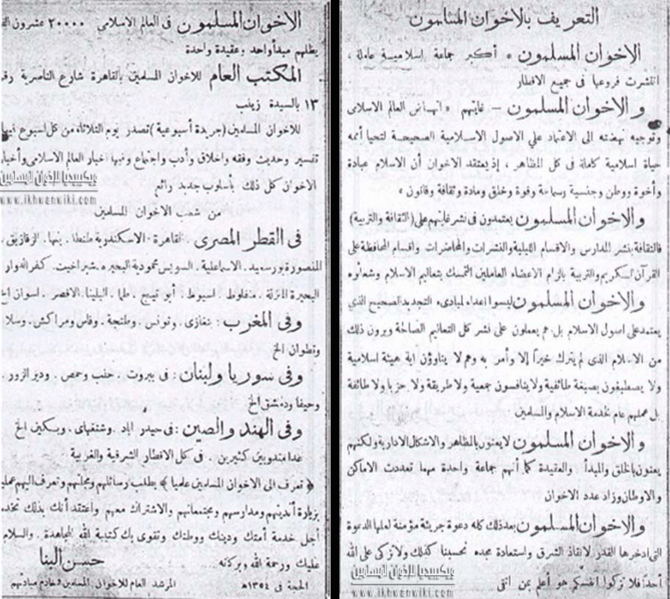 التعريف بالاخوان المسلمون
الاخوان المسلمون « أكبر جماعة اسلاميسة عاملة ،
انتشرت فروعها فى جميع الاقطار
والاخوان المسلمون – غايتهم « انهاض العالم الاسلامى
وتوجيه نهضته الى الاعتماد على الاصول الاسلامية الصحيحة لتحيا أمه
حياة اسلامية كاملة فى كل المظاهر ، إذ يعتقد الاخوان أن الاسلام عبادة
وأخوة ووطن وجنسية وسماحة وقوة وخلق ومادة وثقافة وقانون »
والاخوان المسلمون يعتمدون فى نشر غايتهم على (الثقافة والتربية)
فالثقافة بنشر المدارس والاقسام الليلية والنشرات والمحاضرات واقسام المحافظة على
القرآن الكريم والتربية بالزام الاعضاء العاملين التمسك بتعاليم الاسلام وشعائره
والاخوان المسلمون ليسوا أعداء لمبادىء التجديد الصحيح الذى
يعتمد على اصول الاسلام بل هم يعملون على نشر كل التعاليم الصالحة ويرون ذلك
من الاسلام الذى لم يترك خيرا إلا وأمر به وهم لا يناوؤن اية هيئة اسلامية
ولا يصطبغون بصبغة طائفية ولا ينافسون جمعية ولا طريقة ولا حزبا ولا طائفة
بل عملهم عام لخدمة الاسلام والمسلمين
والاخوان المسلمون لا يعنون بالمظاهر والاشكال الادارية ولكنهم
يعنون بالخلق والمبدأ والعقيدة كما أنهم جماعة واحدة مهما تعددت الاماكن
والاوطان وزاد عدد الاخوان
والاخوان المسلمون بعد ذلك كله دعوة جريئة مؤمنة لعلها الدعوة
التى ادخرها القدر لانقاذ الشرق واستعادة مجده نحسبنا كذلك ولا نزكى على الله
أحدا فلا تزكوا انفسكم هو أعلم بمن اتقى
ويكيبيديا الإخوان المسلمين
www.ikhwanwiki.com
الاخوان المسلمون فى العالم الاسلامى ٢٠٠٠٠ عشرون
مبدأ واحد وعقيدة واحدة
المكتب العام للاخوان المسلمين بالقاهرة شارع الناصرية
١٣ بالسيدة زينب
للاخوان المسلمين (جريدة أسبوعية) تصدر يوم الثلاثاء من كل اسبوع فيها
تفسير وحديث وفقه واخلاق وأدب واجتماع وفيها اخبار العالم الاسلامى وأخبار
الاخوان كل ذلك بأسلوب جديد رائع
ويكيبيديا الإخوان المسلمين
www.ikhwanwiki.com
من شعب الاخوان المسلمين
فى القطر المصرى . القاهرة . الاسكندرية طنطا . بنها . الزقازيق .
المنصورة بورسعيد . الاسماعيلية . السويس محمودية البحيرة . شبراخيت . كفر
البحيرة المنزلة . منفلوط . اسيوط . أبو تيج . طما . البلينا الاقصر . اسوان الخ
وفى المغرب : بنغازى . وتونس . وطنجة . وفاس ومراكش . وسلا
وتطوان الخ
وفى سوريا ولبنان : فى بيروت . حلب وحمص . ودير الزور .
وحيفا ودمشق الخ
وفى الهند والصين : فى حيدر اباد وشنغهاى . وبسكين الخ
عدا مندوبين كثيرين . فى كل الاقطار الشرقية والغربية
« تعرف الى الاخوان المسلمين عمليا » بطلب رسائلهم ومجلتهم وتعرف اليهم عمليا
بزيارة أنديتهم ومدارسهم ومجتمعاتهم والاشتراك معهم واعتقد أنك بذلك تخدم
أجل خدمة أمتك ودينك ووطنك وتقوى بك كتيبة الله المجاهدة . والسلام
عليك ورحمة الله وبركاته حسن البنا
الحجة فى ١٣٥٤هـ المرشد العام للاخوان المسلمين وخادم مبادئهم